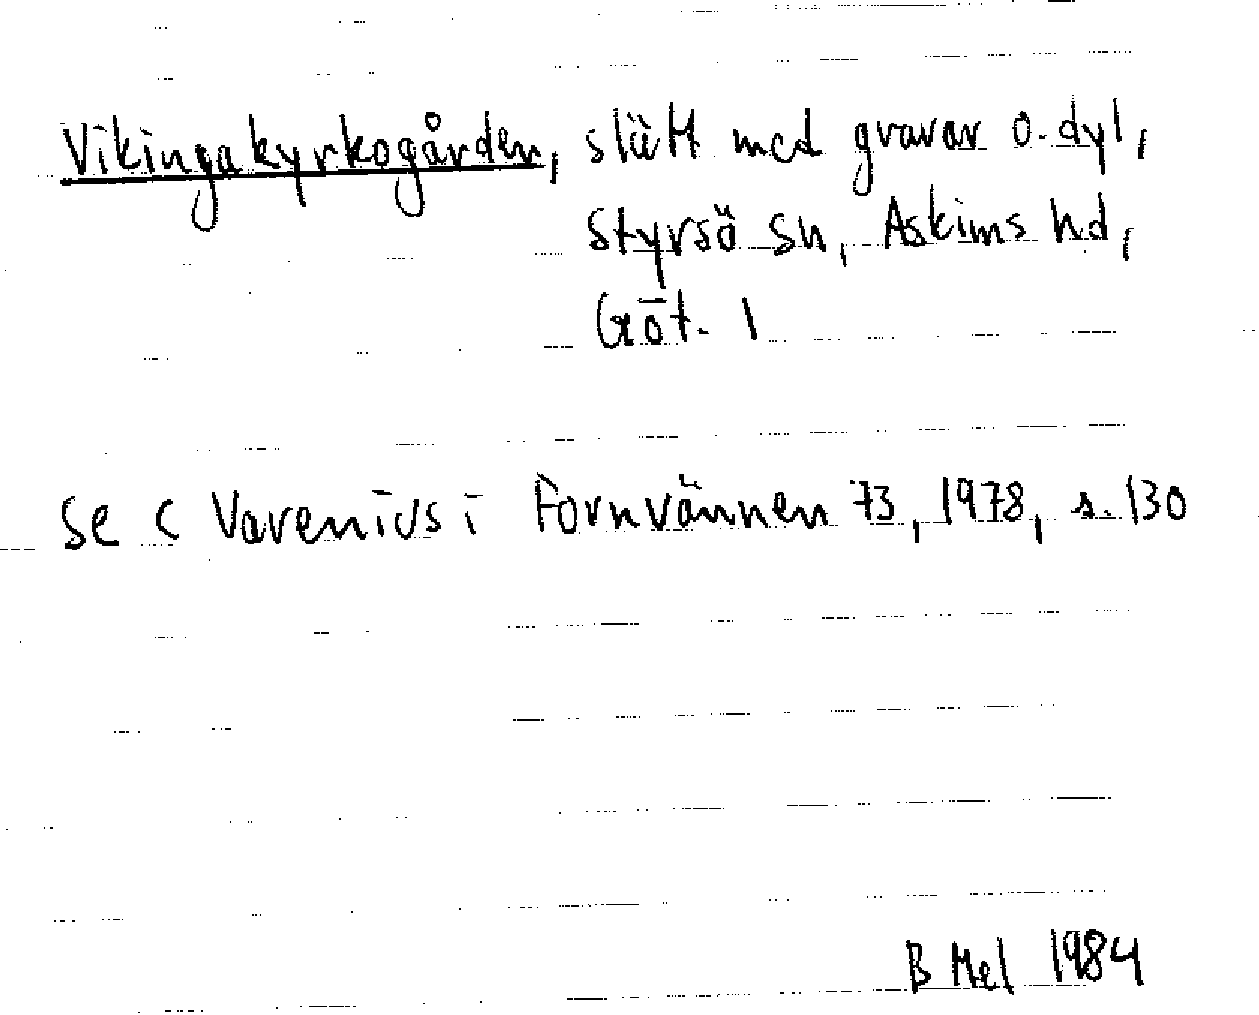 Vikingakyrkogården, slätt med gravar o. dyl,
Styrsö sn, Askims hd,
Göt. 1
se C Varenius i Fornvännen 73, 1978, s. 130
B Mel 1984